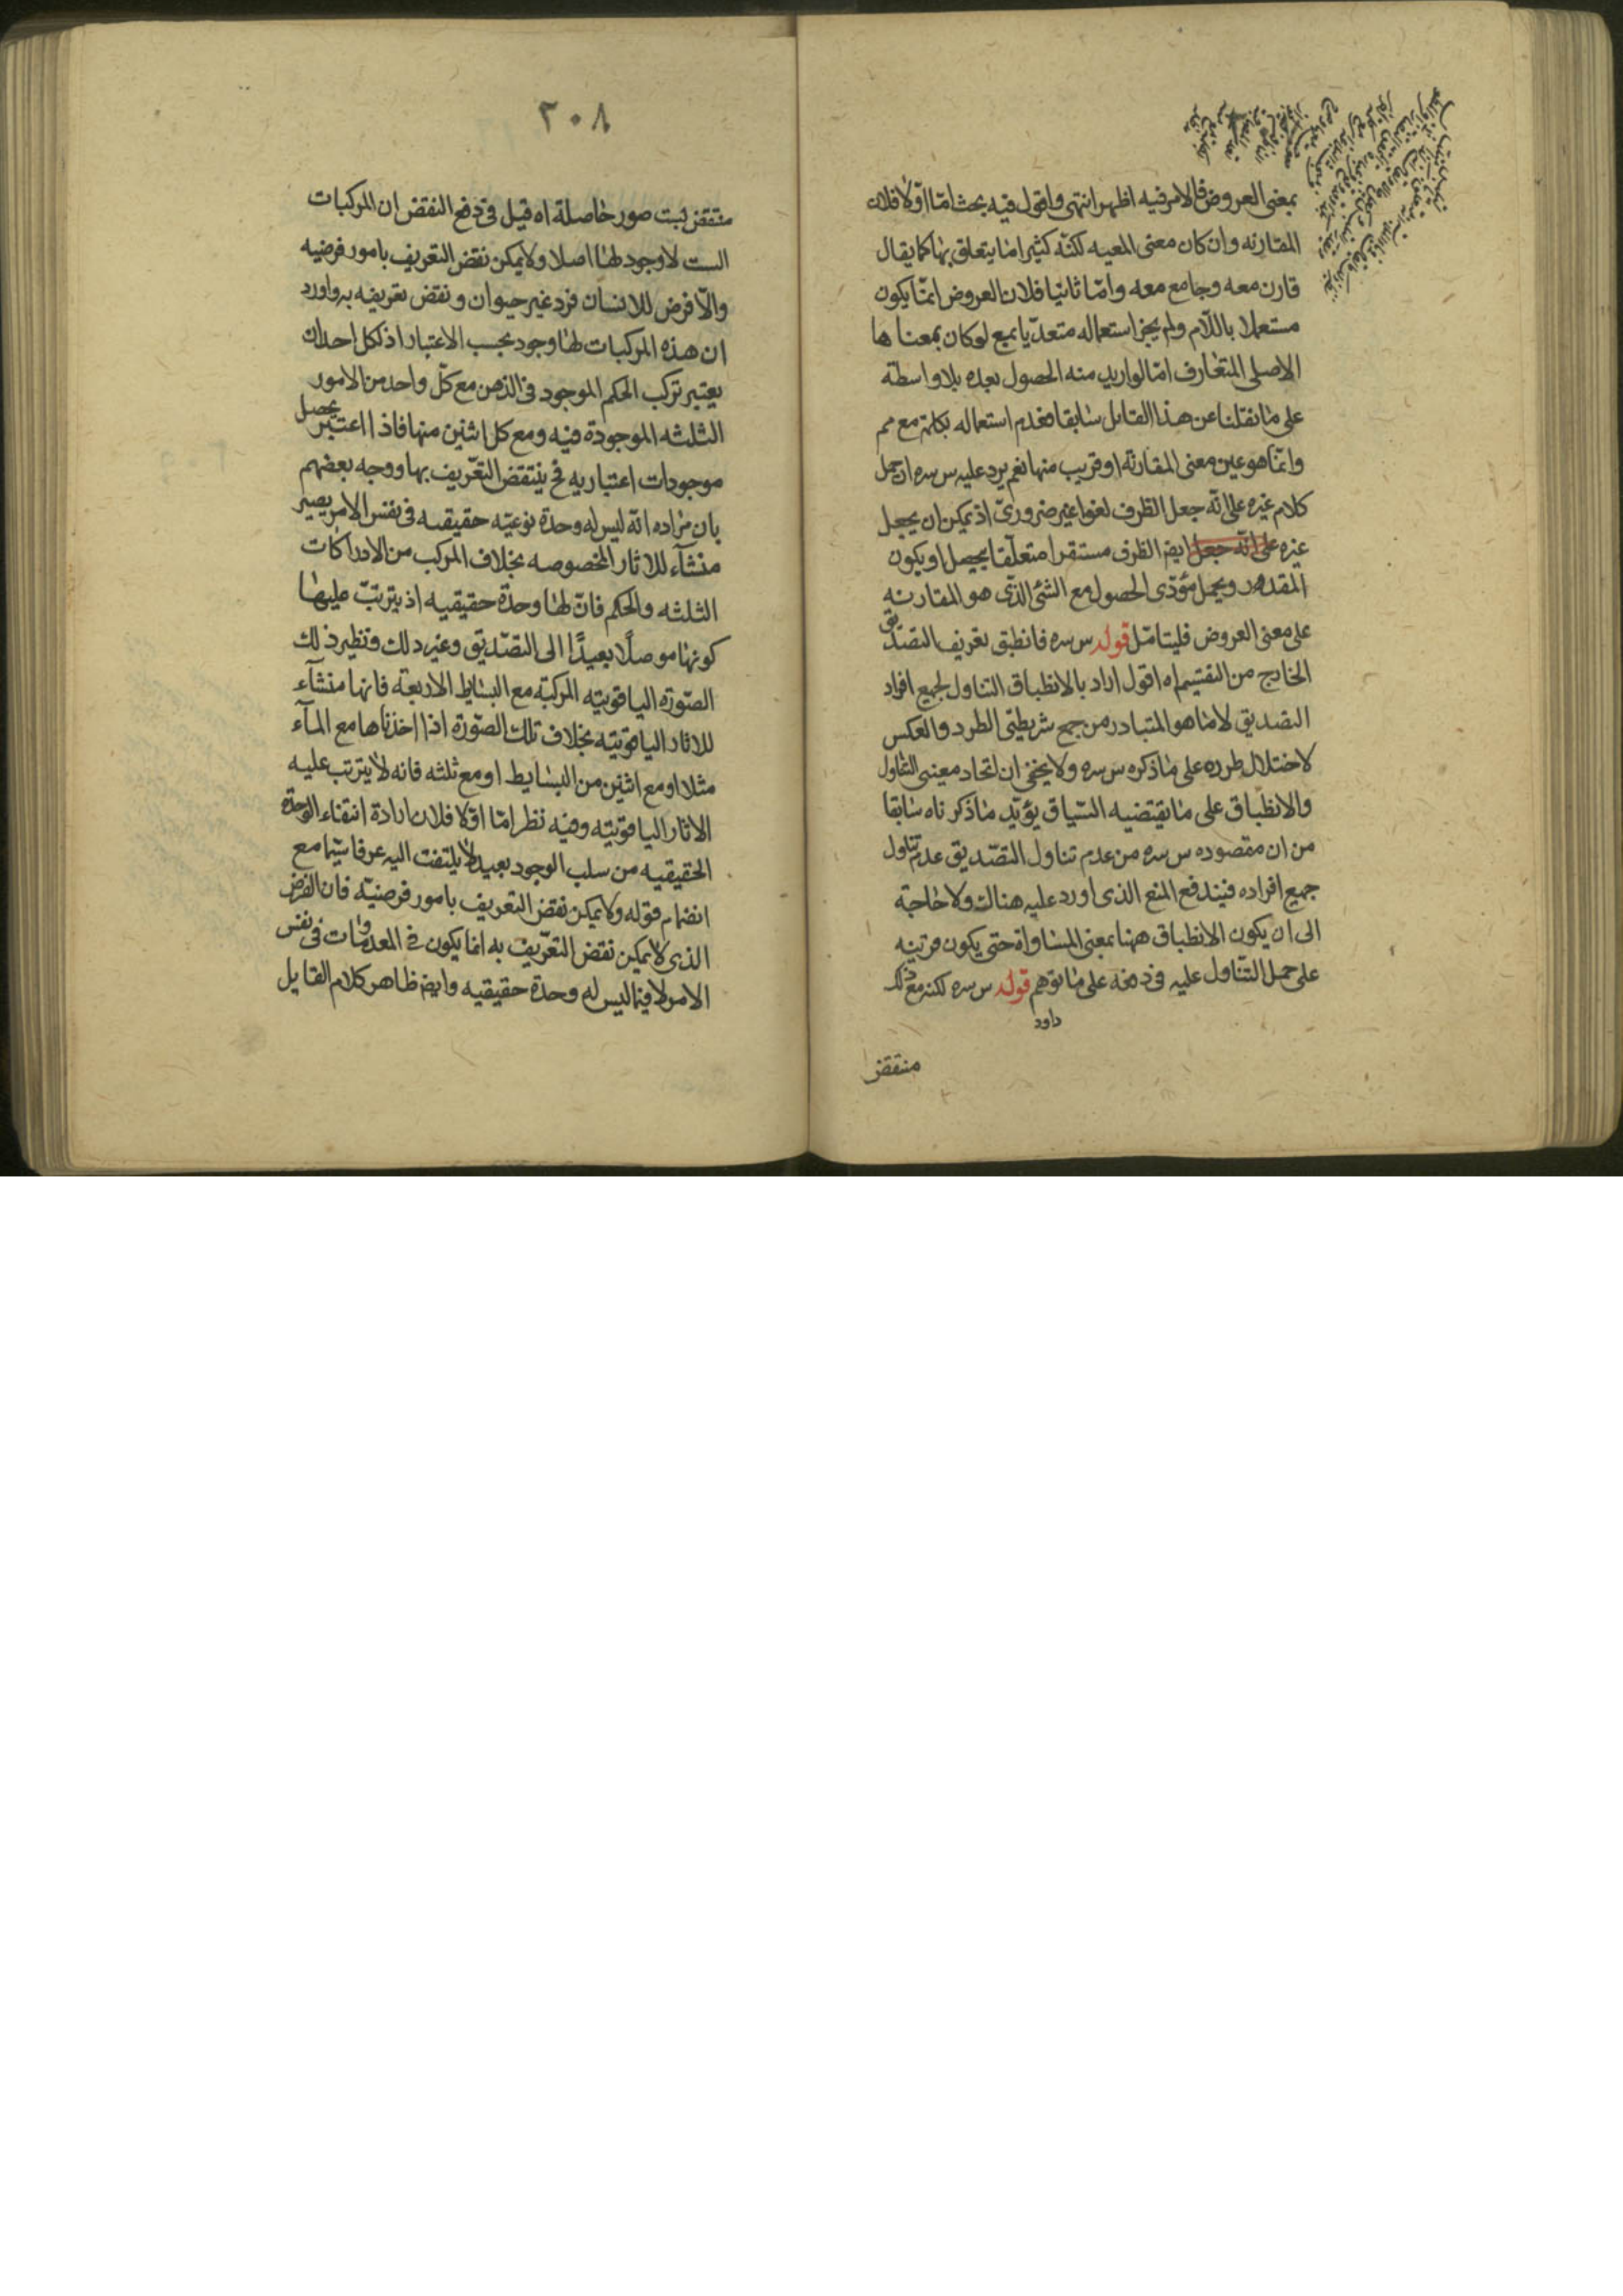 بمعنى العروض فالامر فيه اظهر انتهى واقول فيه بحث امّا اوّلا فلان
المقارنه وان كان معنى المعيه لكنّه كثيرا ما يتعلق بها كما يقال
قارن معه وجامع معه وامّا ثانيا فلان العروض انمّا يكون
مستعملا باللّام ولم يجز استعماله متعدّيا بمع لو كان بمعناها
الاصلى المتعارف امّا لو اريد منه الحصول بعده بلا واسطة
على ما نقلنا عن هذا القائل سابقا فعدم استعماله بكلمة مع مم
وانمّا هو عين معنى المقارنة او قريب منها نعم يرد عليه س سره ان حمل
كلام غيره على انّه جعل الظرف لغوا غير ضرورىّ اذ يمكن ان يجعل
غيره على انّه جعل ايضا الظرف مستقرا متعلّقا بحصل او يكون
المقدر ويحمل مؤدّى الحصول مع الشئ الذى هو المقارنه
على معنى العروض فليتامّل قوله س سره فانطبق تعريف التصديق
الخارج من التقسيم اه اقول اراد بالانطباق التناول لجميع افراد
التصديق لا ما هو المتبادر من جمع شريطتى الطرد والعكس
لاختلال طرده على ما ذكره س سره ولا يخفى ان اتحاد معنيى التناول
والانطباق على ما يقتضيه السّياق يؤيّد ما ذكرناه سابقا
من ان مقصوده س سره من عدم تناول التصّديق عدم تناول
جميع افراده فيندفع المنع الذى اورد عليه هناك ولا حاجة
الى ان يكون الانطباق ههنا بمعنى المساواة حتى يكون قرينه
على حمل التنّاول عليه فى دفعه على ما توهم قوله س سره لكنه مع ذلك
داود
منتقض
٢٠٨
منتقض بست صور حاصلة اه قيل فى دفع النقض ان المركبات
الست لا وجود لها اصلا ولا يمكن نقض التعريف بامور فرضيه
والّا فرض للانسان فرد غير حيوان ونقض تعريفه به واورد
ان هذه المركبات لها وجود بحسب الاعتبار اذ لكل احد ان
يعتبر تركب الحكم الموجود فى الذهن مع كلّ واحد من الامور
الثلثه الموجودة فيه ومع كل اثنين منها فاذا اعتبر يحصل
موجودات اعتباريه فح ينتقض التعّريف بها ووجه بعضهم
بان مراده انّه ليس له وحدة نوعيّه حقيقيه فى نفس الامر يصير
منشآء للاثار المخصوصه بخلاف المركب من الادراكات
الثلثه والحكم فانّ لها وحدة حقيقيه اذ يترتبّ عليها
كونها موصلًا بعيدًا الى التصّديق وغير ذلك ونظير ذلك
الصّورة الياقوتيه المركبّة مع البسايط الاربعة فانها منشآء
للاثار الياقوتيّه بخلاف تلك الصّورة اذا اخذناها مع المآء
مثلا او مع اثنين من البسايط او مع ثلثه فانه لا يترتب عليه
الاثار الياقوتيّه وفيه نظر امّا اوّلا فلان ارادة انتفاء الوحدة
الحقيقيه من سلب الوجود بعيد لا يلتفت اليه عرفا سيّما مع
انضمام قوله ولا يمكن نقض التعريف بامور فرضيّه فان الفرض
الذى لا يمكن نقض التعّريف به انما يكون فى المعدومات فى نفس
الامر لا فيما ليس له وحدة حقيقيه وايضا ظاهر كلام القايل